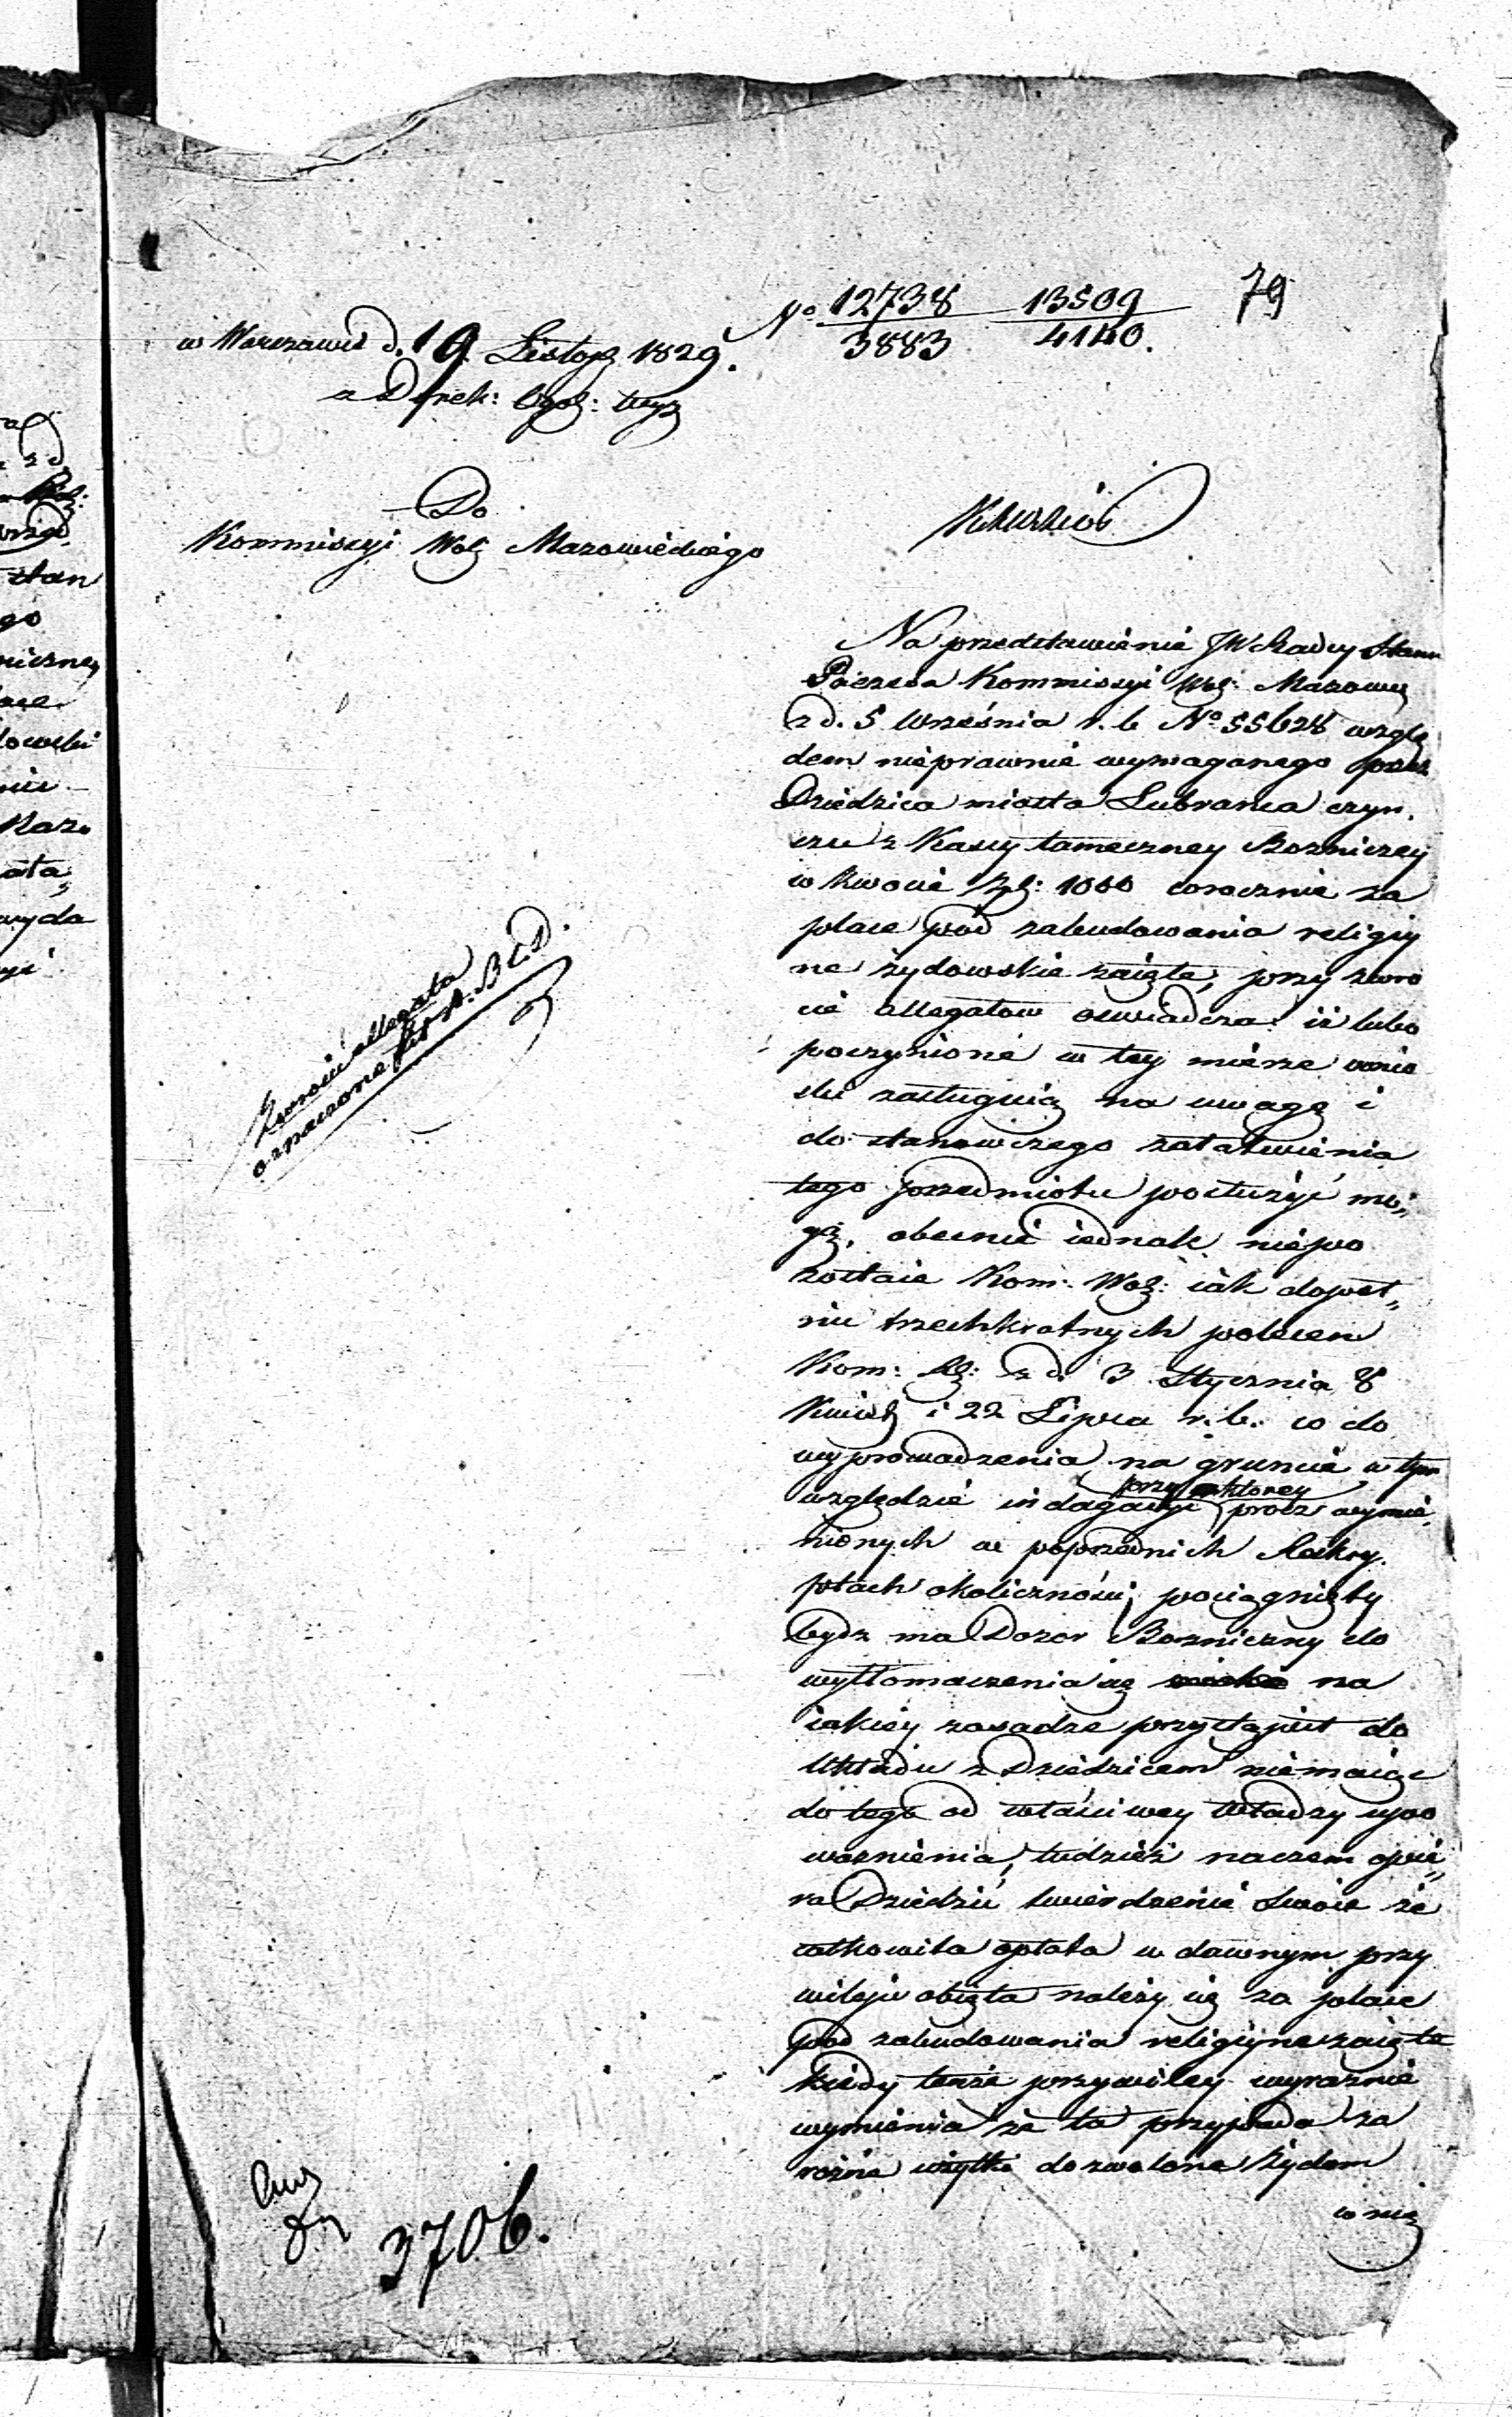 79
No 12738 13509
3883 4140.
w Warszawie d. 19 Listop 1829.
z Dyrek: Ogol:
Do
Kommissyi Woj Mazowieckiego
Na przedstawienie JW Radcy Stanu
Prezesa Kommissyi Woj: Mazowiec
z d. 5 Września r. b. No 55628 wzglę
dem nieprawnie wymaganego przez
Dziedzica miasta Lubrańca czyn,
szu z Kassy tameczney Bozniczey
w kwocie Zpl: 1000 corocznie za
place pod zabudowania religiy
ne żydowskie zaięte, przy zwro
cie allegatow oswiadcza iż lubo
poczynione w tey mierze wnio
ski zasługuią na uwagę i
do stanowczego załatwienia
tego przedmiotu posłużyć mo„
gą, obecnie iednak niepo
zostaie Kom: Woj: iak dopeł„
nić trzechkrotnych poleceń
Kom: Rz: z d. 3 Stycznia 8
Kwiet i 22 Lipca r. b. co do
wyprowadzenia na gruncie w tym
przy ktorey
względzie indagacyi procz wymie„
nionych w poprzednich Reskry.
ptach okoliczności, pociągnięty
bydz ma Dozor Bozniczny do
wytłomaczenia się na
iakiey zasadze przystąpił do
Układu z Dziedzicem niemaiąc
do tego od właściwey Władzy upo
ważnienia, tudzież naczem opie„
ra Dziedzic twierdzenie swoie że
całkowita opłata w dawnym przy
wileju obięta należy się za place
pod zabudowania religiyne zaięte
kiedy tenże przywiley wyraznie
wymienia że ta przypada za
rożne użytki dozwolone Żydom
w mie
Zwrocić allegata
oznaczone lit. A. B C. D.
3706.